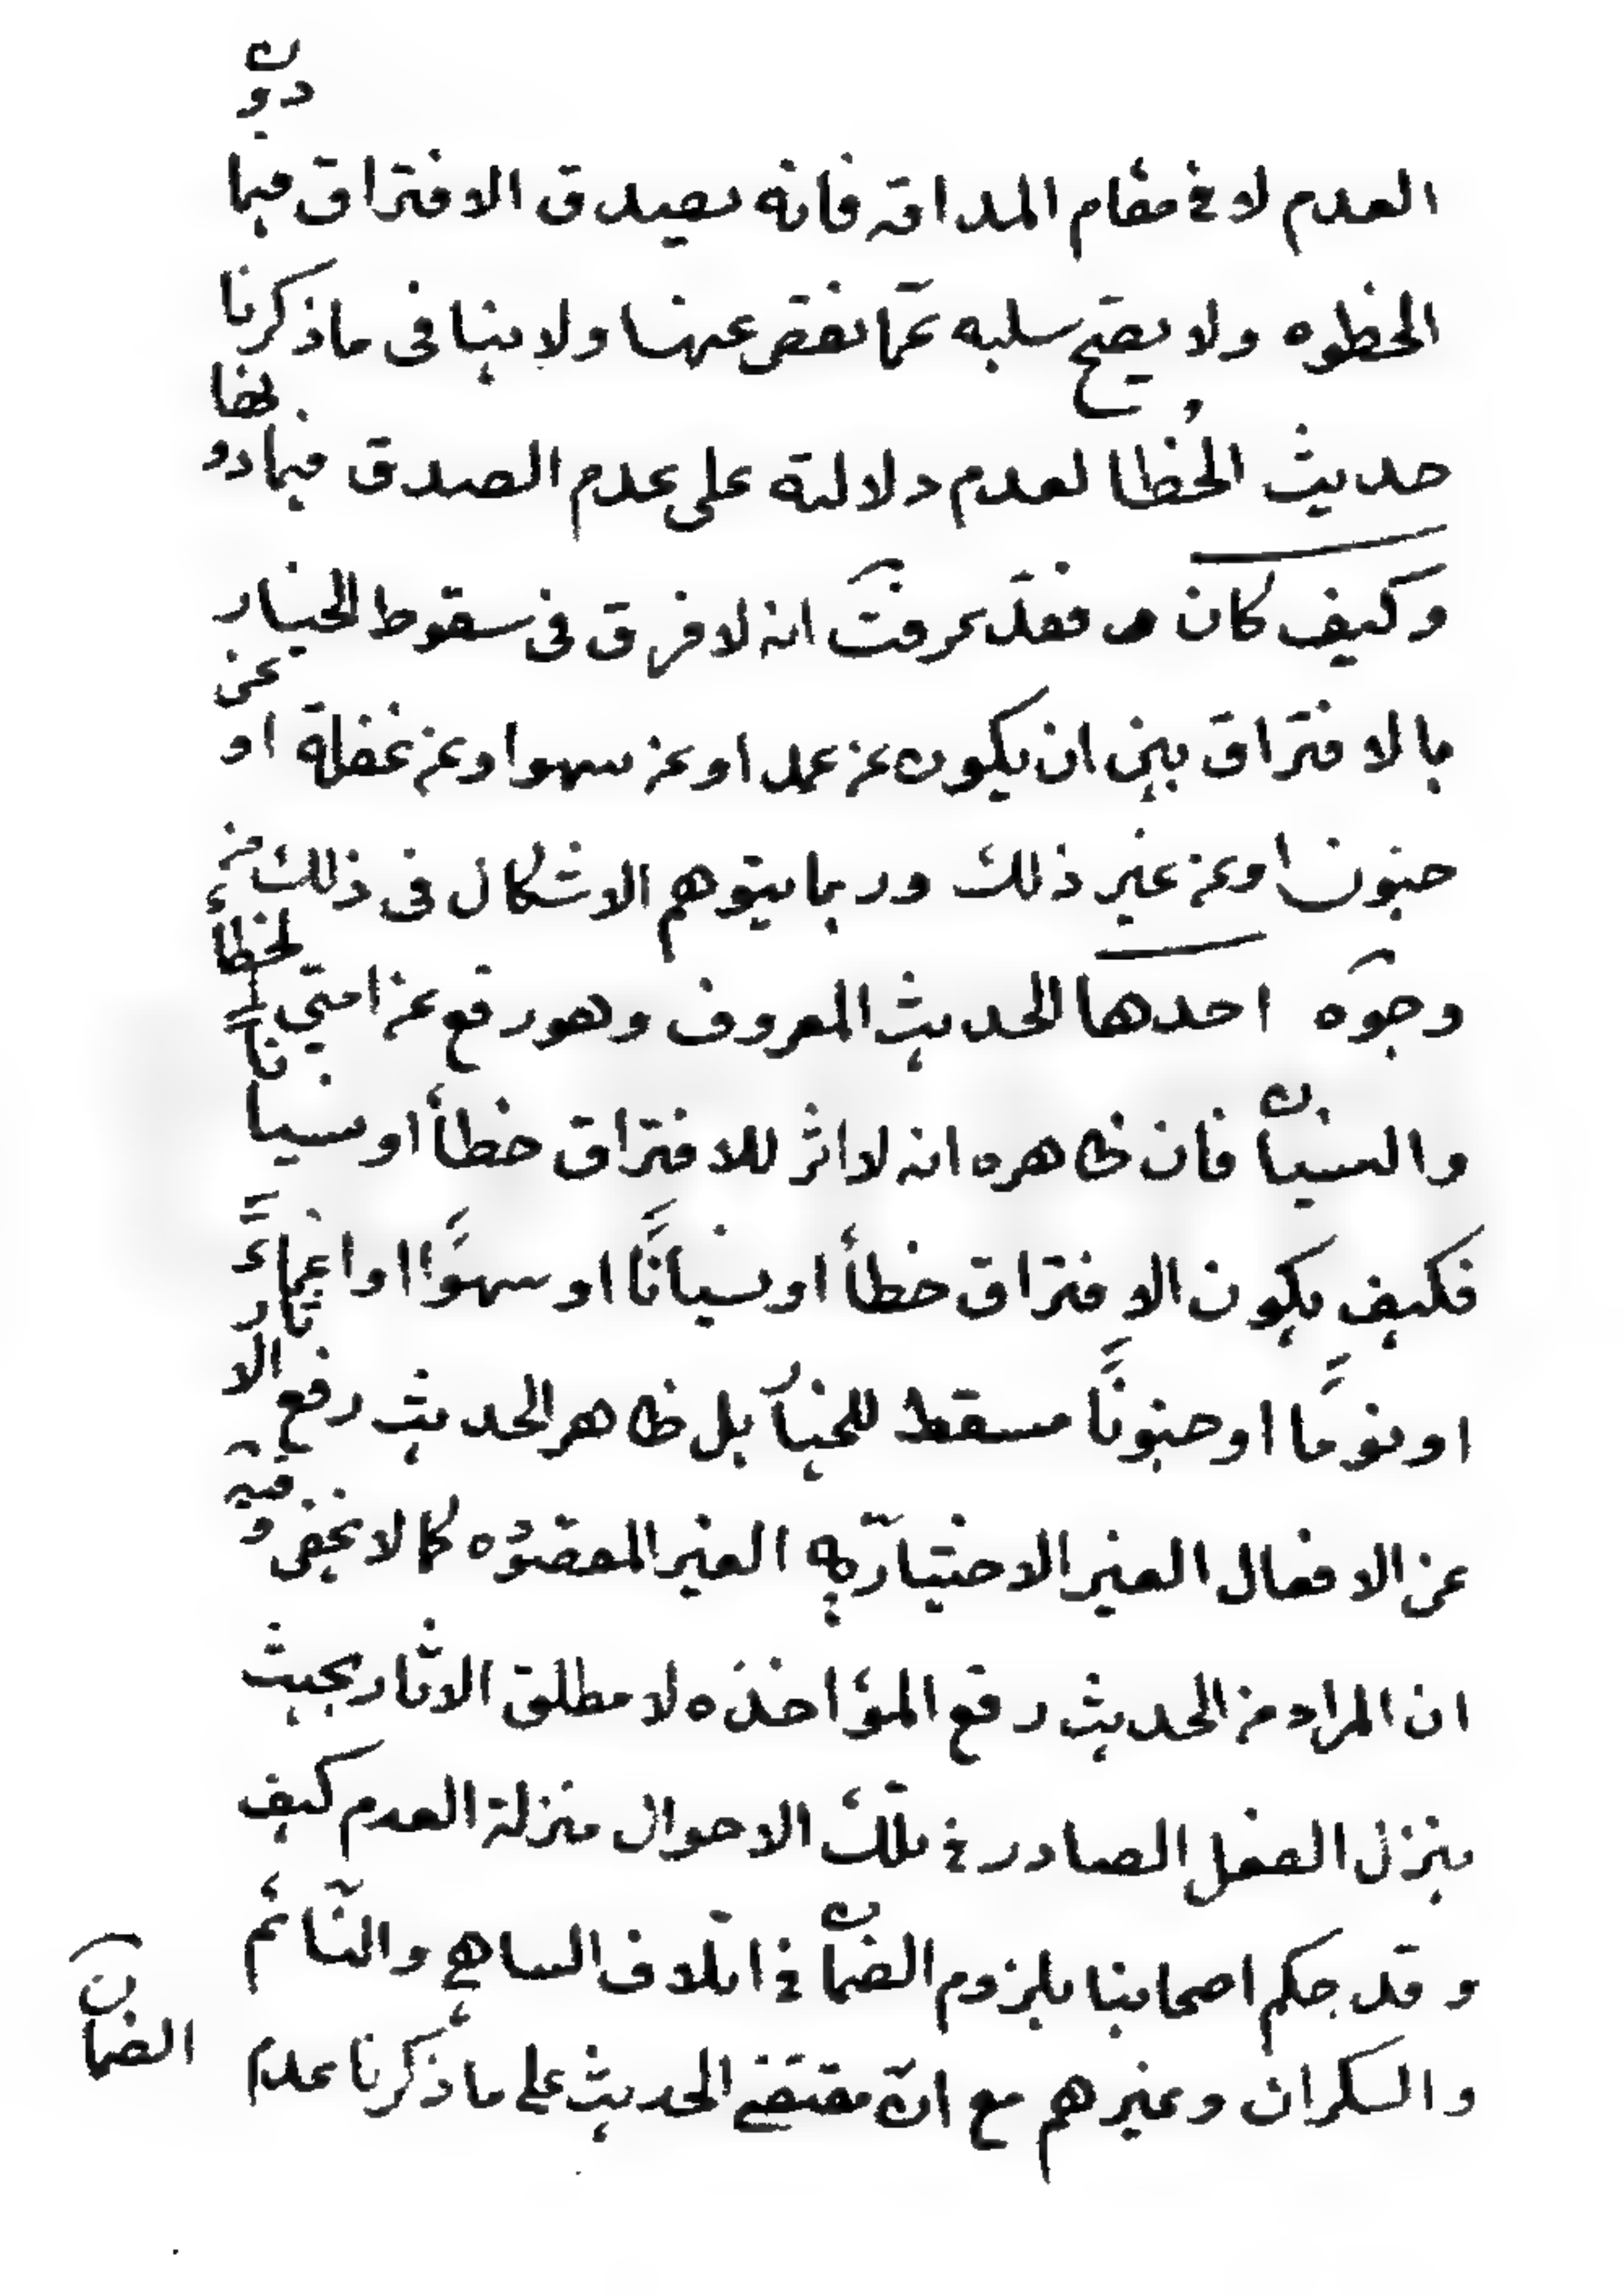 العدم لا في مقام المداقه فانه يصدق الافتراق فيما دون
الخطوه ولا يصح سلبه عما نقص عنها ولا ينافى ما ذكرنا
حديث الخُطا لعدم دلالته على عدم الصدق فيما دونها
وكيف كان فقد عرفت انه لا فرق فى سقوط الخيار
بالافتراق بين ان يكون عن عمد او عن سهو او عن غفلة او عن
جنون او عن غير ذلك وربما يتوهم الاشكال فى ذلك من
وجوه احدها الحديث المعروف وهو رفع عن امتي الخطأ
والنسيان فان ظاهره انه لا اثر للافتراق خطأ او نسيانا
فكيف يكون الافتراق خطأ او نسيانًا او سهوًا او اغماءً
او نومًا او جنونًا مسقط للخيار بل ظاهر الحديث رفع الاثار
عن الافعال الغير الاختياريه الغير المقصوده كما لا يخفى وفيه
ان المراد من الحديث رفع المؤاخذه لا مطلق الاثار بحيث
ينزل الفعل الصادر في تلك الاحوال منزلة العدم كيف
وقد حكم اصحابنا بلزوم الضمان في اتلاف الساهي والنائم
والسكران وغيرهم مع ان مقتضى الحديث على ما ذكرنا عدم
الضمان